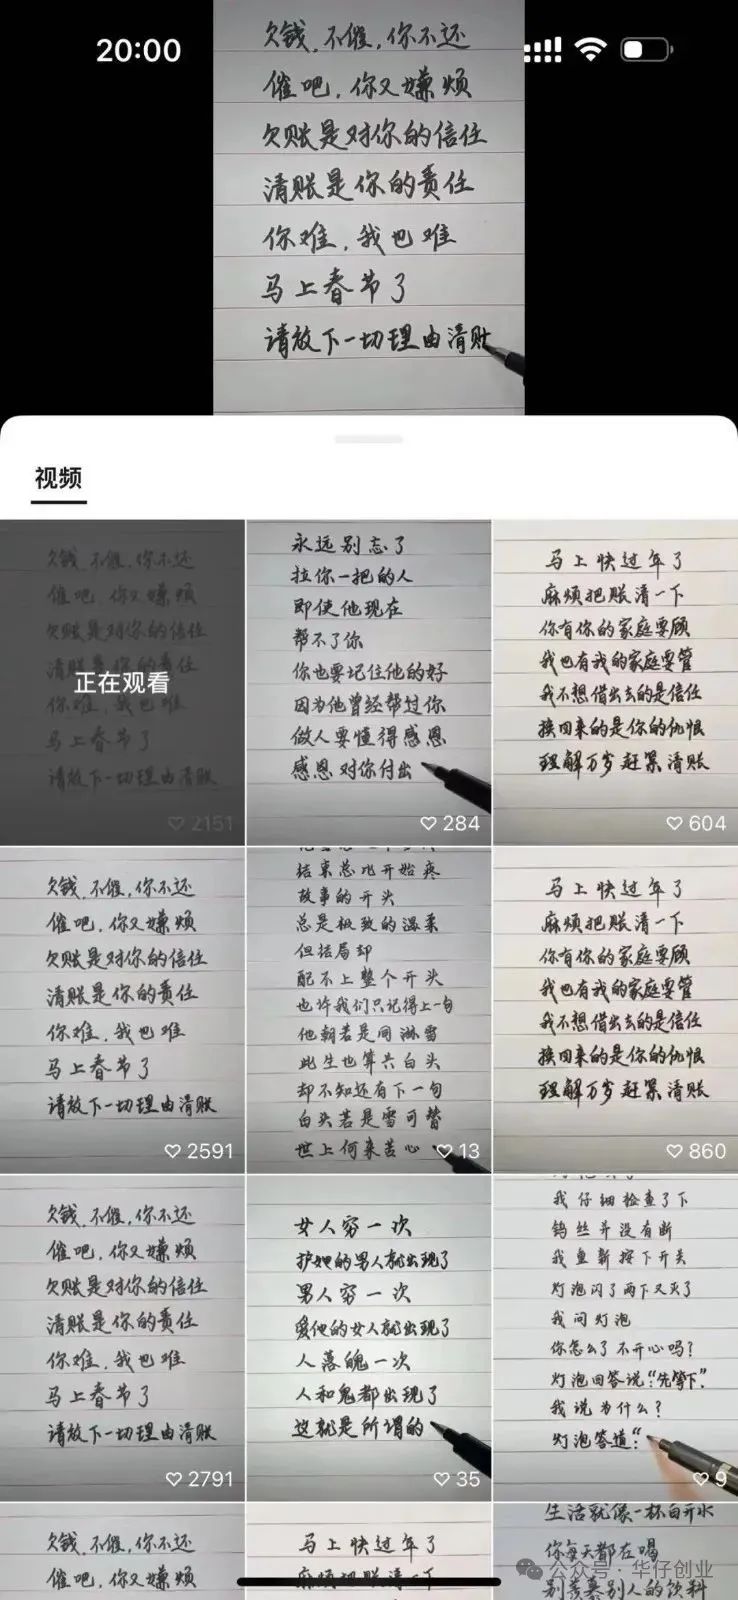 20:00
欠钱,不催,你不还
催吧,你又嫌烦
欠账是对你的信任
清账是你的责任
你难,我也难
马上春节了
请放下一切理由清账
视频
欠钱,不催,你不还
催吧,你又嫌烦
欠账是对你的信任
清账是你的责任
正在观看
你难,我也难
马上春节了
请放下一切理由清账
2151
永远别忘了
拉你一把的人
即使他现在
帮不了你
你也要记住他的好
因为他曾经帮过你
做人要懂得感恩
感恩对你付出
284
马上快过年了
麻烦把账清一下
你有你的家庭要顾
我也有我的家庭要管
我不想借出去的是信任
换回来的是你的仇恨
理解万岁赶紧清账
604
欠钱,不催,你不还
催吧,你又嫌烦
欠账是对你的信任
清账是你的责任
你难,我也难
马上春节了
请放下一切理由清账
2591
结束总比开始疼
故事的开头
总是极致的温柔
但结局却
配不上整个开头
也许我们只记得上一句
他朝若是同淋雪
此生也算共白头
却不知还有下一句
白头若是雪可替
世上何来苦心
13
马上快过年了
麻烦把账清一下
你有你的家庭要顾
我也有我的家庭要管
我不想借出去的是信任
换回来的是你的仇恨
理解万岁赶紧清账
860
欠钱,不催,你不还
催吧,你又嫌烦
欠账是对你的信任
清账是你的责任
你难,我也难
马上春节了
请放下一切理由清账
2791
女人穷一次
护她的男人就出现了
男人穷一次
爱他的女人就出现了
人落魄一次
人和鬼都出现了
这就是所谓的
35
我仔细检查了下
钨丝并没有断
我重新按下开关
灯泡闪了两下又灭了
我问灯泡
你怎么了不开心吗?
灯泡回答说:“先等下”
我说为什么?
灯泡答道:“
9
欠钱,不催,你不还
催吧,你又嫌烦
马上快过年了
麻烦把账清一下
生活就像一杯白开水
你每天都在喝
别羡慕别人的饮料
公众号·华仔创业